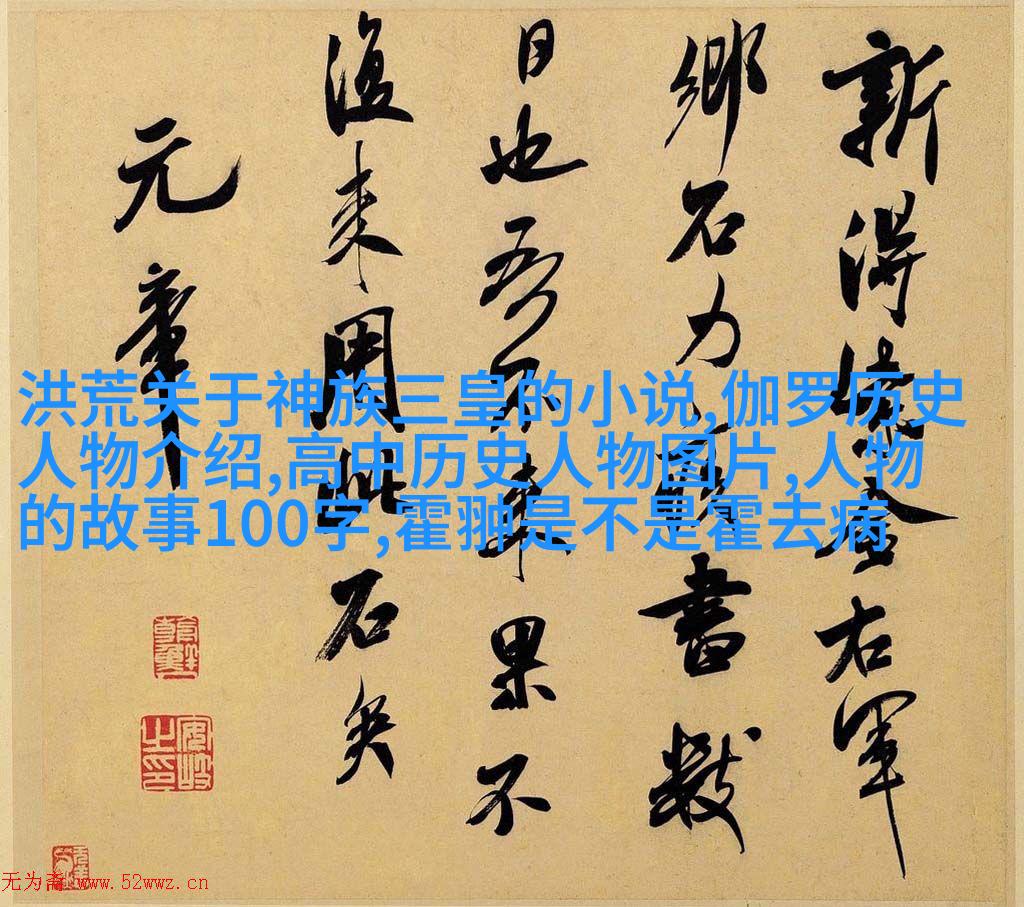 新得紫金右軍
鄉石力疾書數
日也吾不來果不
復來用此石矣
元章
洪荒关于神族三皇的小说,伽罗历史
人物介绍,高中历史人物图片,人物
的故事100字,霍翀是不是霍去病
安岐之印
无为斋 www.52wwz.cn